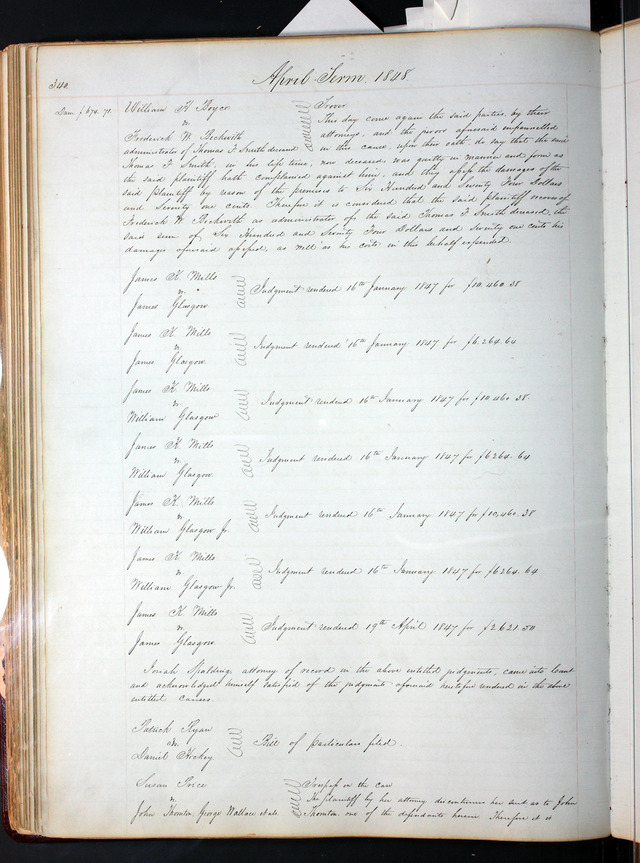 340
April Term 1848
Dam $674.71
William H Boyce
vs
Frederick W. Beckwith
administrator of Thomas F Smith deceased
Trover
This day come again the said parties, by their
attorneys, and the jurors aforesaid empannelled
in this cause, upon their oath do say that the said
Thomas F. Smith, in his life time, now deceased, was guilty in manner and form as
the said plaintiff hath complained against him, and they assess the damages of the
said plaintiff by reason of the premises to Six Hundred and Seventy Four Dollars
and Seventy one cents. Therefore it is considered that the said plaintiff recover of
Frederick W Beckwith as administrator of the said Thomas F. Smith deceased, the
said sum of Six Hundred and Seventy Four Dollars and Seventy one cents his
damages aforesaid assessed, as well as his costs in this behalf expended.
James K. Mills
vs
James Glasgow
Judgment rendered 16th January 1847 for $10.460.38
James K. Mills
vs
James Glasgow.
Judgment rendered 16th January 1847 for $6.264.64
James K. Mills
vs
William Glasgow
Judgment rendered 16th January 1847 for $10.460.38.
James K. Mills
vs
William Glasgow.
Judgment rendered 16th January 1847 for $6264.64
James K. Mills
vs
William Glasgow Jr.
Judgment rendered 16th January 1847 for $10,460.38
James K Mills
vs
William Glasgow Jr.
Judgment rendered 16th January 1847 for $6264.64
James K Mills
vs
James Glasgow.
Judgment rendered 19th April 1847 for $2.621.50
Josiah Spalding, attorney of record in the above entitled judgments, came into Court
and acknowledged himself satisfied of the judgments aforesaid heretofore rendered in the above
entitled causes.
Patrick Ryan
vs.
Daniel Hickey
Bill of particulars filed.
Susan Price
vs.
John Thornton, George Wallace et als
Trespass on the case
The plaintiff by her attorney discontinues her suit as to John
Thornton one of the defendants herein. Therefore it is